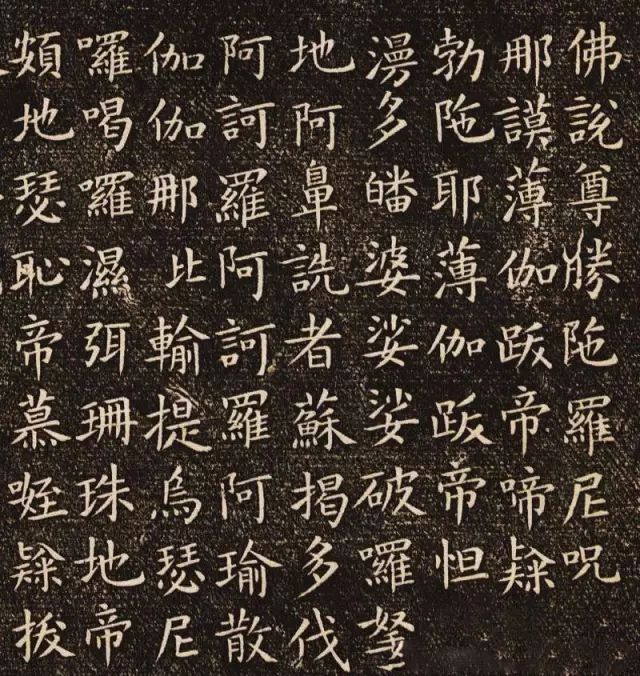 佛說尊勝陁羅尼呪
那謨薄伽跋帝啼隸
勃陁耶薄伽跋帝怛
漫多皤婆娑娑破囉拏
地阿鼻詵者蘇揭多伐
阿訶羅阿訶羅阿瑜散
伽伽那比輸提烏瑟尼
囉喝囉濕弭珊珠地帝
頞地瑟恥帝慕咥隸拔